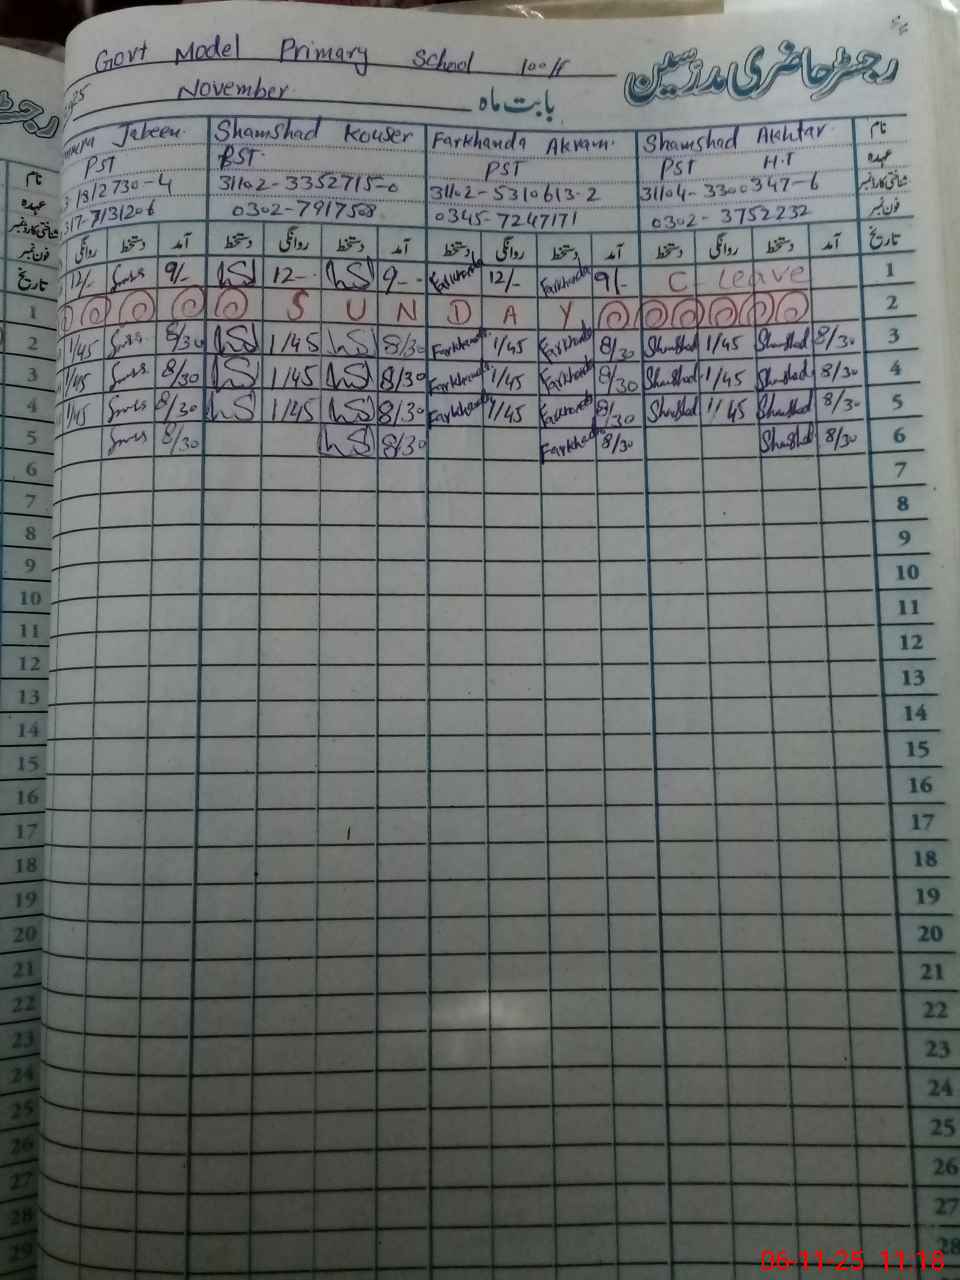 Govt Model Primary School 100/F
رجسٹر حاضری مدرسین
November بابت ماہ
Jabeen Shamshad Kouser Farkhanda Akram Shamshad Akhtar نام
PST PST PST PST H.T عہدہ
31102-3352715-0 31102-5310613-2 31104-3300347-6 شناختی کارڈ نمبر
0302-7917508 0345-7247171 0302-3752232 فون نمبر
روانگی دستخط آمد دستخط روانگی دستخط آمد دستخط روانگی دستخط آمد دستخط روانگی دستخط آمد تاریخ
12/- 9/- 12-- 9-- Farkhanda 12/- Farkhanda 9/- C- leave 1
S U N D A Y 2
1/45 8/30 1/45 8/30 Farkhanda 1/45 Farkhanda 8/30 Shamshad 1/45 Shamshad 8/30 3
1/45 8/30 1/45 8/30 Farkhanda 1/45 Farkhanda 8/30 Shamshad 1/45 Shamshad 8/30 4
1/45 8/30 1/45 8/30 Farkhanda 1/45 Farkhanda 8/30 Shamshad 1/45 Shamshad 8/30 5
8/30 8/30 Farkhanda 8/30 Shamshad 8/30 6
7
8
9
10
11
12
13
14
15
16
17
18
19
20
21
22
23
24
25
26
27
28
نام
عہدہ
شناختی کارڈ نمبر
فون نمبر
تاریخ
1
2
3
4
5
6
7
8
9
10
11
12
13
14
15
16
17
18
19
20
21
22
23
24
25
26
27
28
29
06-11-25 11:18